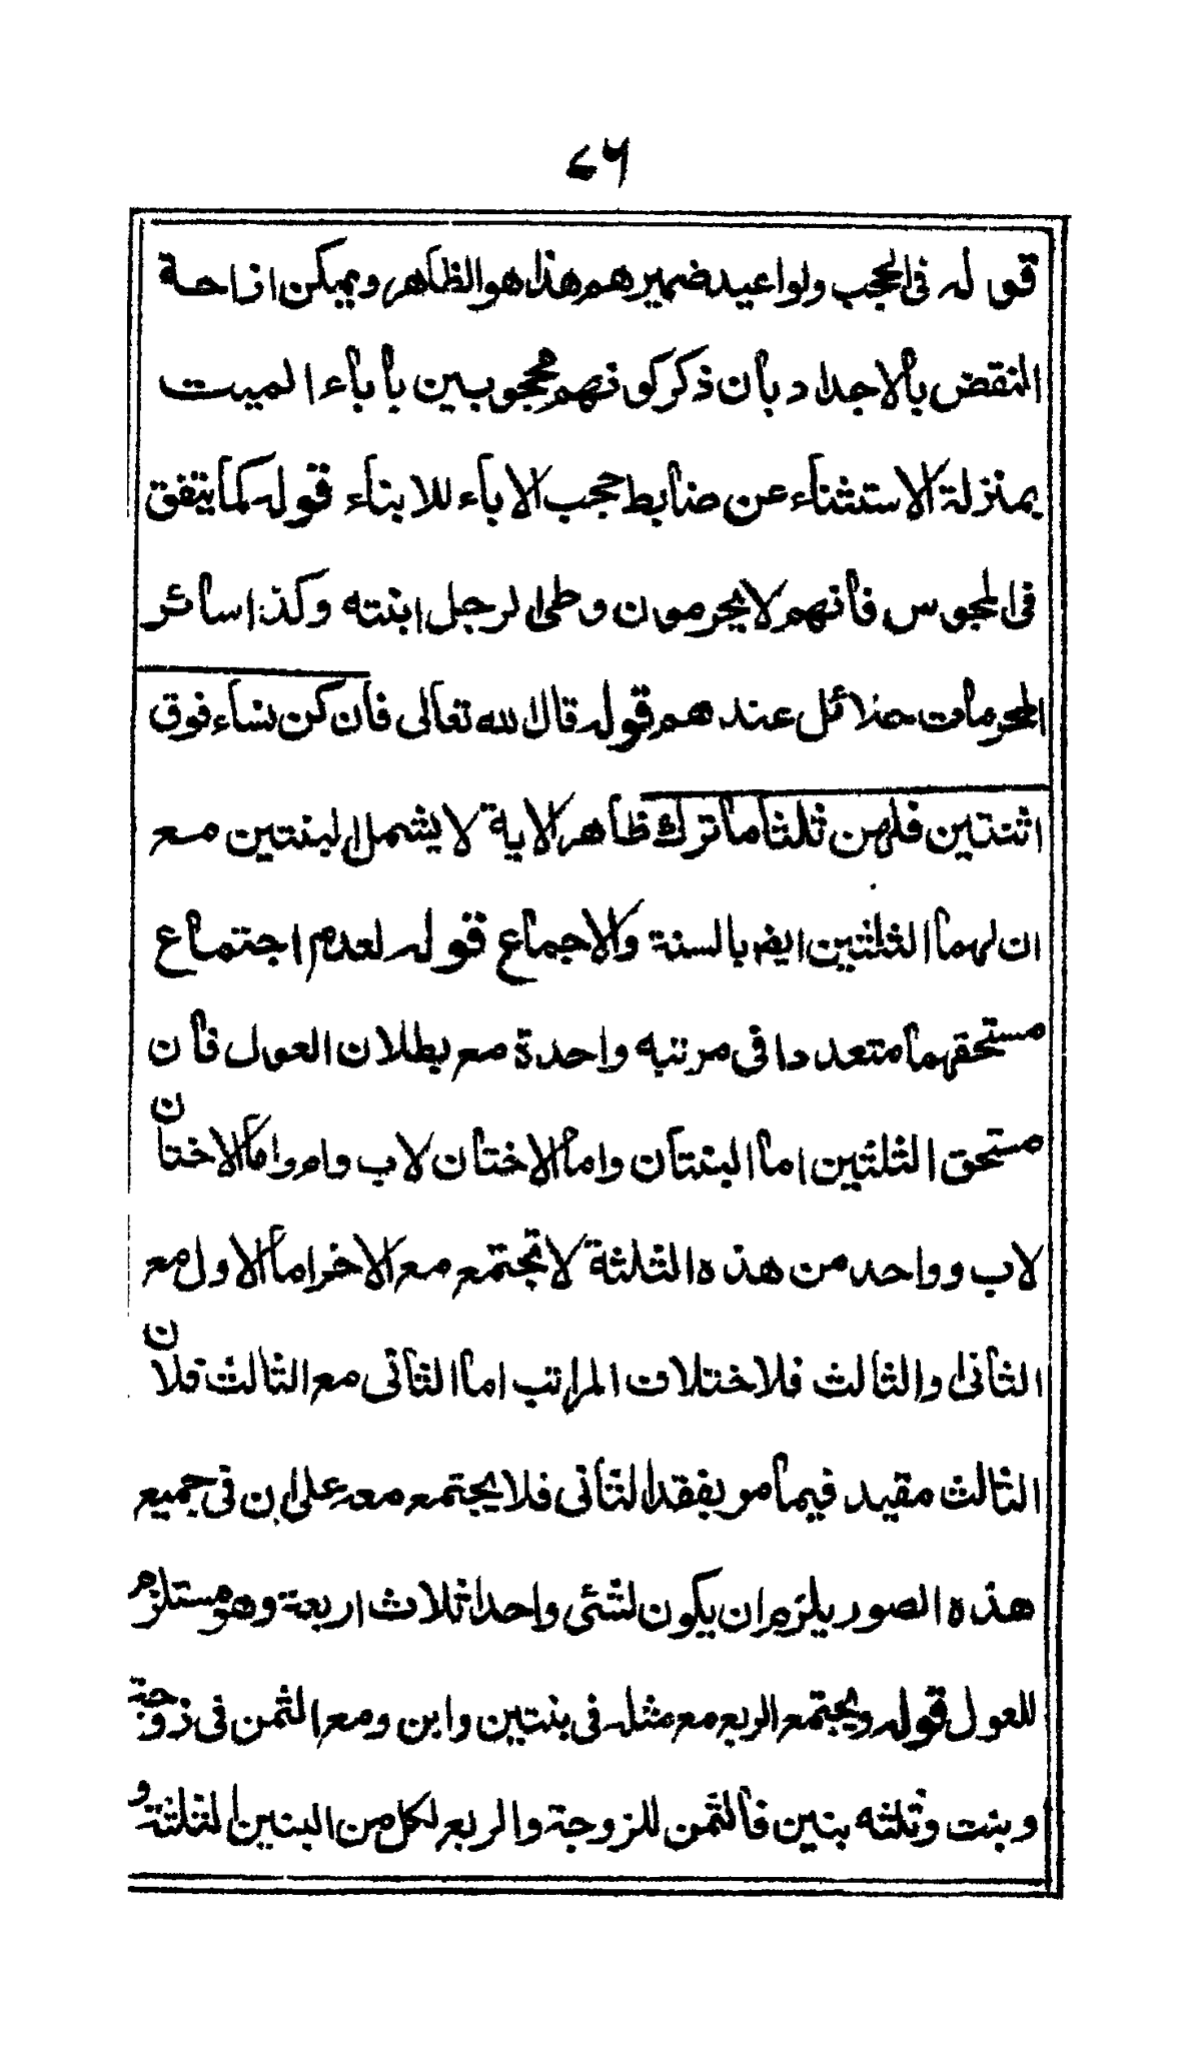 ٤٦
قوله فى الحجب ولو اعيد ضميرهم هذا هو الظاهر ويمكن ازاحة
النقض بالاجداد بأن ذكر كونهم محجوبين بأباء الميت
بمنزلة الاستثناء عن ضابط حجب الاباء للابناء قوله كما يتفق
فى المجوس فأنهم لا يحرمون وطى الرجل ابنته وكذا سائر
المحرمات حلائل عندهم قوله قال الله تعالى فأن كن نساء فوق
اثنتين فلهن ثلثا ما ترك ظاهر الاية لا يشمل البنتين مع
ان لهما الثلثين ايضا بالسنة والاجماع قوله لعدم اجتماع
مستحقهما متعددا فى مرتبه واحدة مع بطلان العول فأن
مستحق الثلثين اما البنتان واما الاختان لاب وام واما الاختان
لاب وواحد من هذه الثلثة لا تجتمع مع الاخر اما الاول مع
الثانى والثالث فلاختلاف المراتب اما الثانى مع الثالث فلان
الثالث مقيد فيما مر بفقد الثانى فلا يجتمع معه على ان فى جميع
هذه الصور يلزم ان يكون لشئى واحد اثلاث اربعة وهو مستلزم
للعول قوله ويجتمع الربع مع مثله فى بنتين وابن ومع الثمن فى زوجة
وبنت وثلثه بنين فالثمن للزوجة والربع لكل من البنين الثلثة و